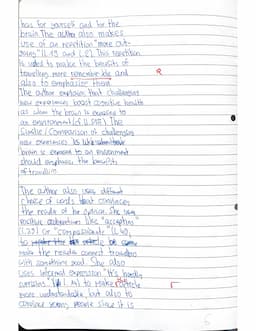 has for yourself and for the
brain. The author also makes
use of an repetition "more out-
going" (l. 49 and l. 52). This repetition
is used to make the benefits of
travelling more remember ble and
also to emphasize them.
The author explains that challenging
new experiences boost cognitive health
as when the brain is exposed to
an environment (cf. ll. ). The
Simile / Comparison of challenging
new experiences
brain is exposed to an environment
should emphasize the benefits
of travelling
R
The author also uses different
choice of words that convinces
the reader of her opinion. She uses
positive adjectives like "accepting"
(l. 25) or "compassionate" (l. 40),
to
make the reader connect travelling
with something good. She also
uses informal expression "it's hardly
surprising" (l. 14) to make article
more understandable, but also to
convince young people since it is
r
5